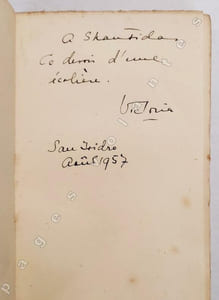 A Shantidas
Ce devoir d'une
écolière.
Victoria
San Isidro
Août 1957